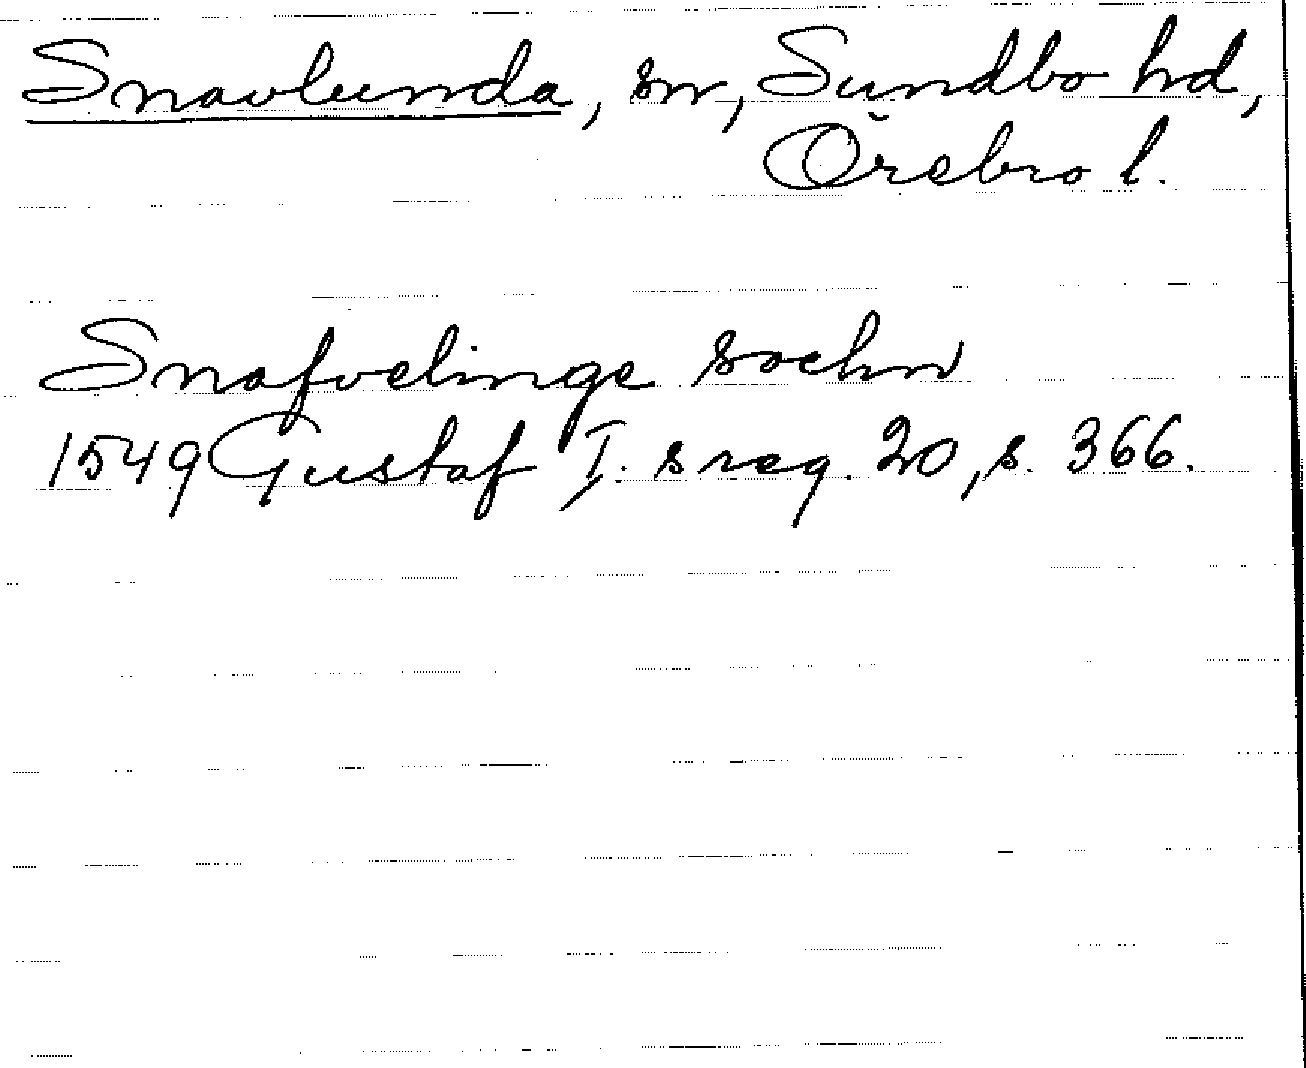 Snavlunda, sn, Sundbo hd,
Örebro l.
Snafvelinge sochn
1549 Gustaf I. s reg. 20, s. 366.